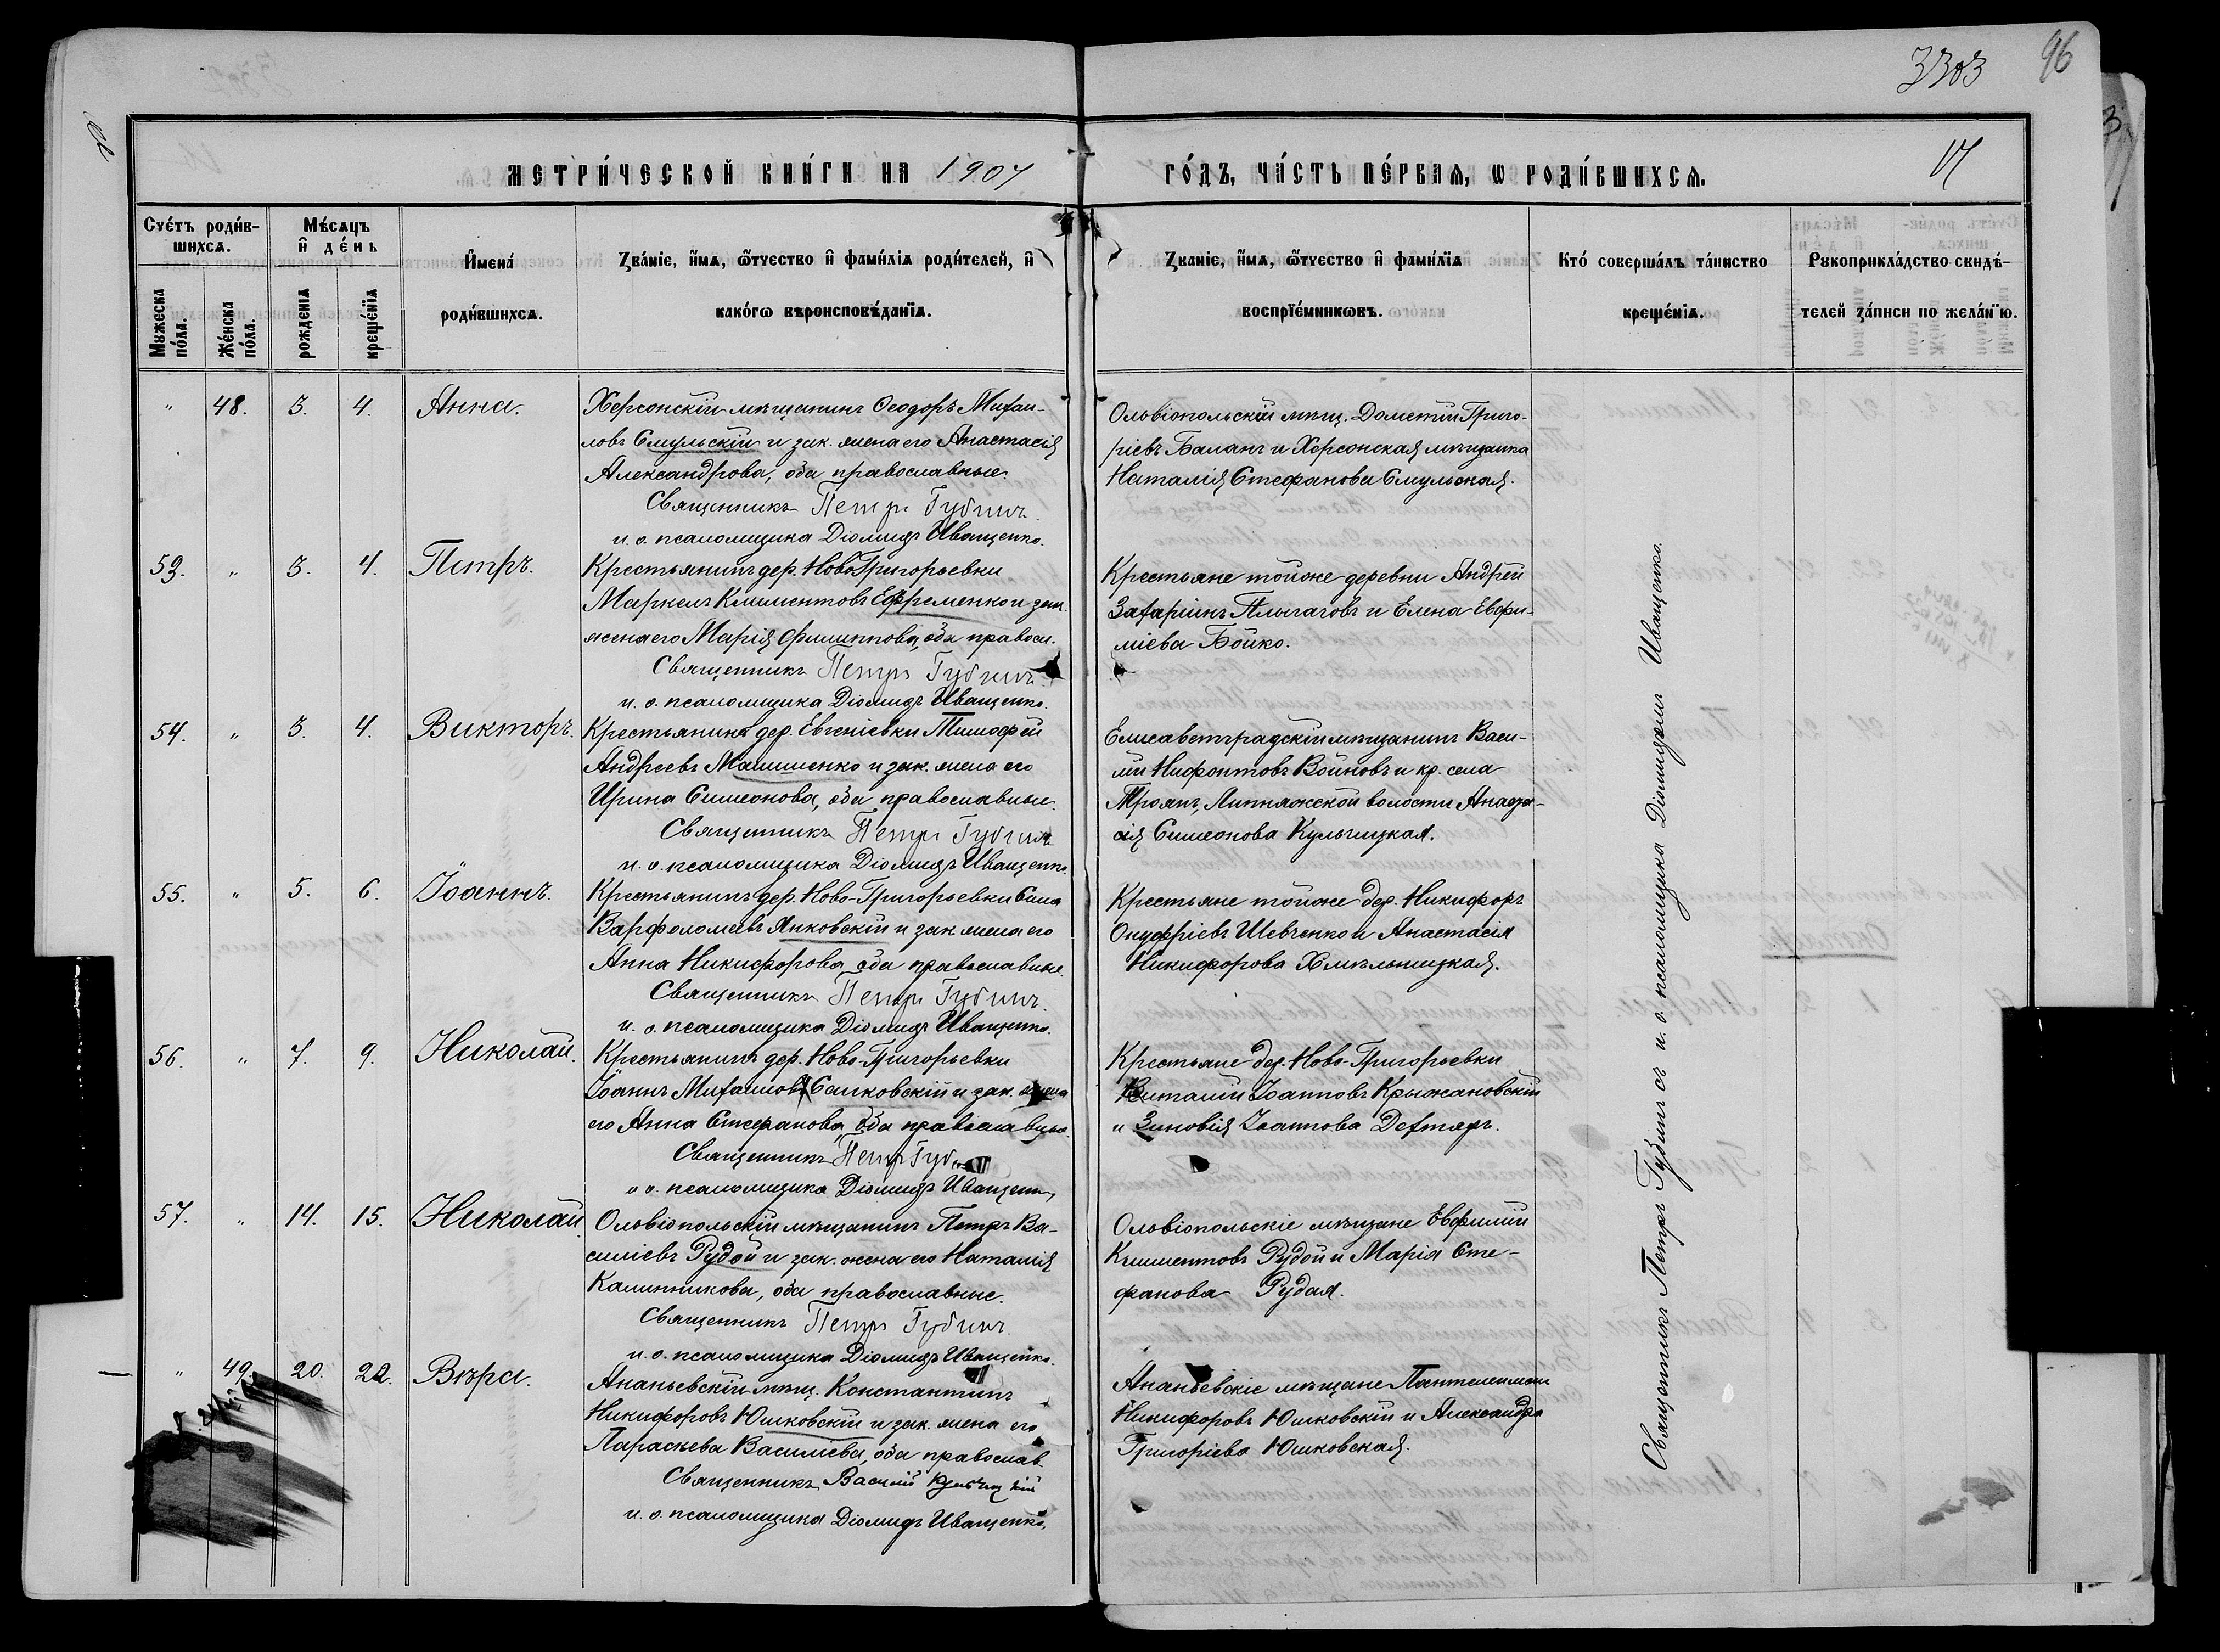 3303
96
МЕТРИ́ЧЕСКОЙ КНИ́ГИ НА 1907
ГО́ДЪ, ЧА́СТЬ ПЕ́РВАѦ, Ѡ РОДИ́ВШИХСѦ.
Сче́тъ роди́в-
шихсѧ.
Мѣ́сѧцъ
и҆ де́нь
Мꙋжеска по́ла.
Же́нска по́ла.
рожденїѧ
креще́нїѧ
И҆мена̀
роди́вшихсѧ.
Зва́нїе, и҆́мѧ, ѻ҆́тчество и҆ фами́лїѧ роди́телей, и҆
како́гѡ вѣроисповѣ́данїѧ.
Зва́нїе, и҆́мѧ, ѻ҆́тчество и҆ фами́лїѧ
воспрїе́мникѡвъ.
Кто̀ соверша́лъ та́инство
креще́нїѧ.
Рꙋкоприкла́дство свидѣ́-
телей за́писи по жела́нїю.
" 48. 3. 4. Анна.
Херсонскій мѣщанинъ Ѳеодоръ Михаи-
ловъ Смульскій и зак. жена его Анастасія
Александрова, оба православные.
Священникъ Петръ Гудимъ.
и. о. псаломщика Діомидъ Иващенко.
Ольвіопольскій мѣщ. Дометій Григо-
рьевъ Баланъ и Херсонская мѣщанка
Наталія Стефанова Смульская.
53. " 3. 4. Петръ.
Крестьянинъ дер. Ново-Григорьевки
Маркелъ Климентовъ Ефременко и зак.
жена его Марія Филиппова, оба правосл.
Священникъ Петръ Гудимъ
и. о. псаломщика Діомидъ Иващенко.
Крестьяне тойже деревни Андрей
Захаріинъ Плыгачовъ и Елена Евфи-
міева Бойко.
54. " 3. 4. Викторъ.
Крестьянинъ дер. Евгеніевки Тимофей
Андреевъ Малишенко и зак. жена его
Ирина Симеонова, оба православные.
Священникъ Петръ Гудимъ
и. о. псаломщика Діомидъ Иващенко.
Елисаветградскій мѣщанинъ Васи-
лій Нифонтовъ Войновъ и кр. села
Троянъ, Липняжской волости
Симеонова Кульчицкая.
55. " 5. 6. Іоаннъ.
Крестьянинъ дер. Ново-Григорьевки Сила
Варфоломеевъ Янковскій и зак жена его
Анна Никифорова, оба православные.
Священникъ Петръ Гудимъ.
и. о. псаломщика Діомидъ Иващенко.
Крестьяне тойже дер. Никифоръ
Онуфріевъ Шевченко и Анастасія
Никифорова Хмѣльницкая.
56. " 7. 9. Николай.
Крестьянинъ дер. Ново-Григорьевки
Іоаннъ Михаиловъ Салковскій и зак. жена
его Анна Стефанова, оба православные.
Священникъ Петръ Гудимъ
и о. псаломщика Діомидъ Иващенко
Крестьяне дер. Ново-Григорьевки
Виталій Іоанновъ Крыжановскій
и Зиновія Іоаннова Дехтяръ.
57. " 14. 15. Николай.
Ольвіопольскій мѣщанинъ Петръ Ва-
силіевъ Рудой и зак. жена его Наталія
Калинникова, оба православные.
Священникъ Петръ Гудимъ.
и. о. псаломщика Діомидъ Иващенко.
Ольвіопольскіе мѣщане Евфимій
Климентовъ Рудой и Марія Сте-
фанова Рудая.
" 49. 20. 22. Вѣра.
Ананьевскій мѣщ. Константинъ
Никифоровъ Юшковскій и зак. жена его
Параскева Василіева, оба православ.
Священникъ Василій Кульчицкій
и. о. псаломщика Діомидъ Иващенко.
Ананьевскіе мѣщане Пантелеимонъ
Никифоровъ Юшковскій и Александра
Григоріева Юшковская.
Священникъ Петръ Гудимъ съ и. о. псаломщика Діомидомъ Иващенко.